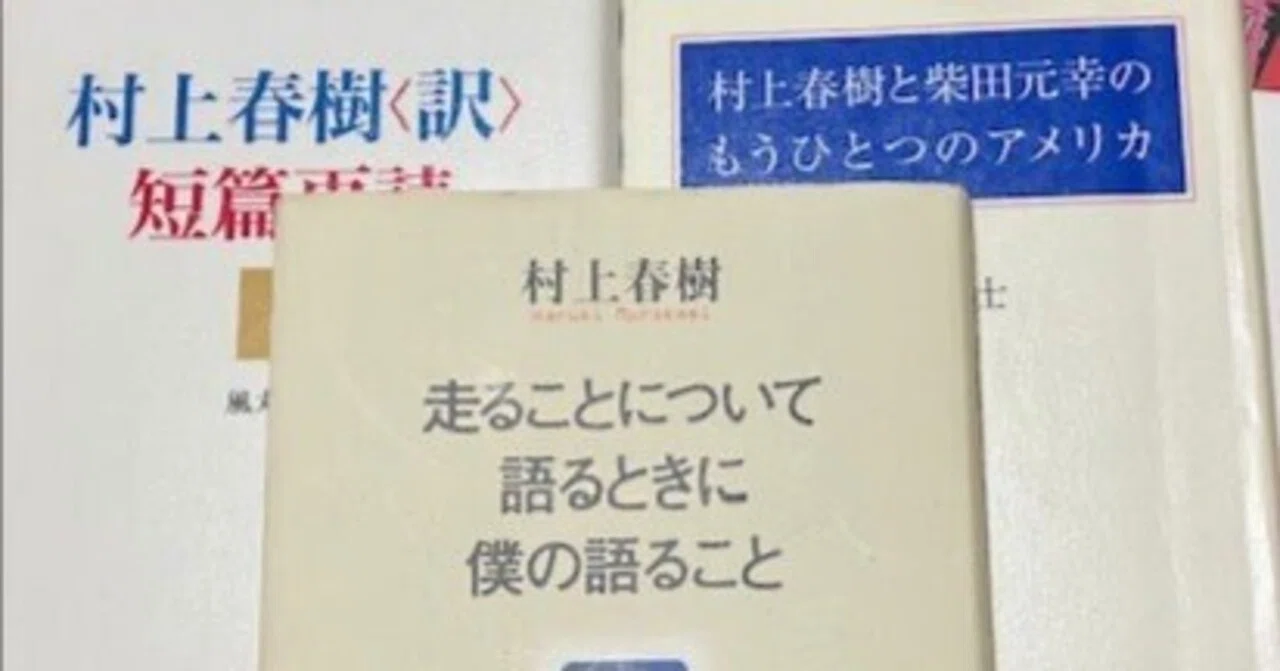 村上春樹〈訳〉
短篇再読
村上春樹と柴田元幸の
もうひとつのアメリカ
士
風丸
村上春樹
Haruki Murakami
走ることについて
語るときに
僕の語ること